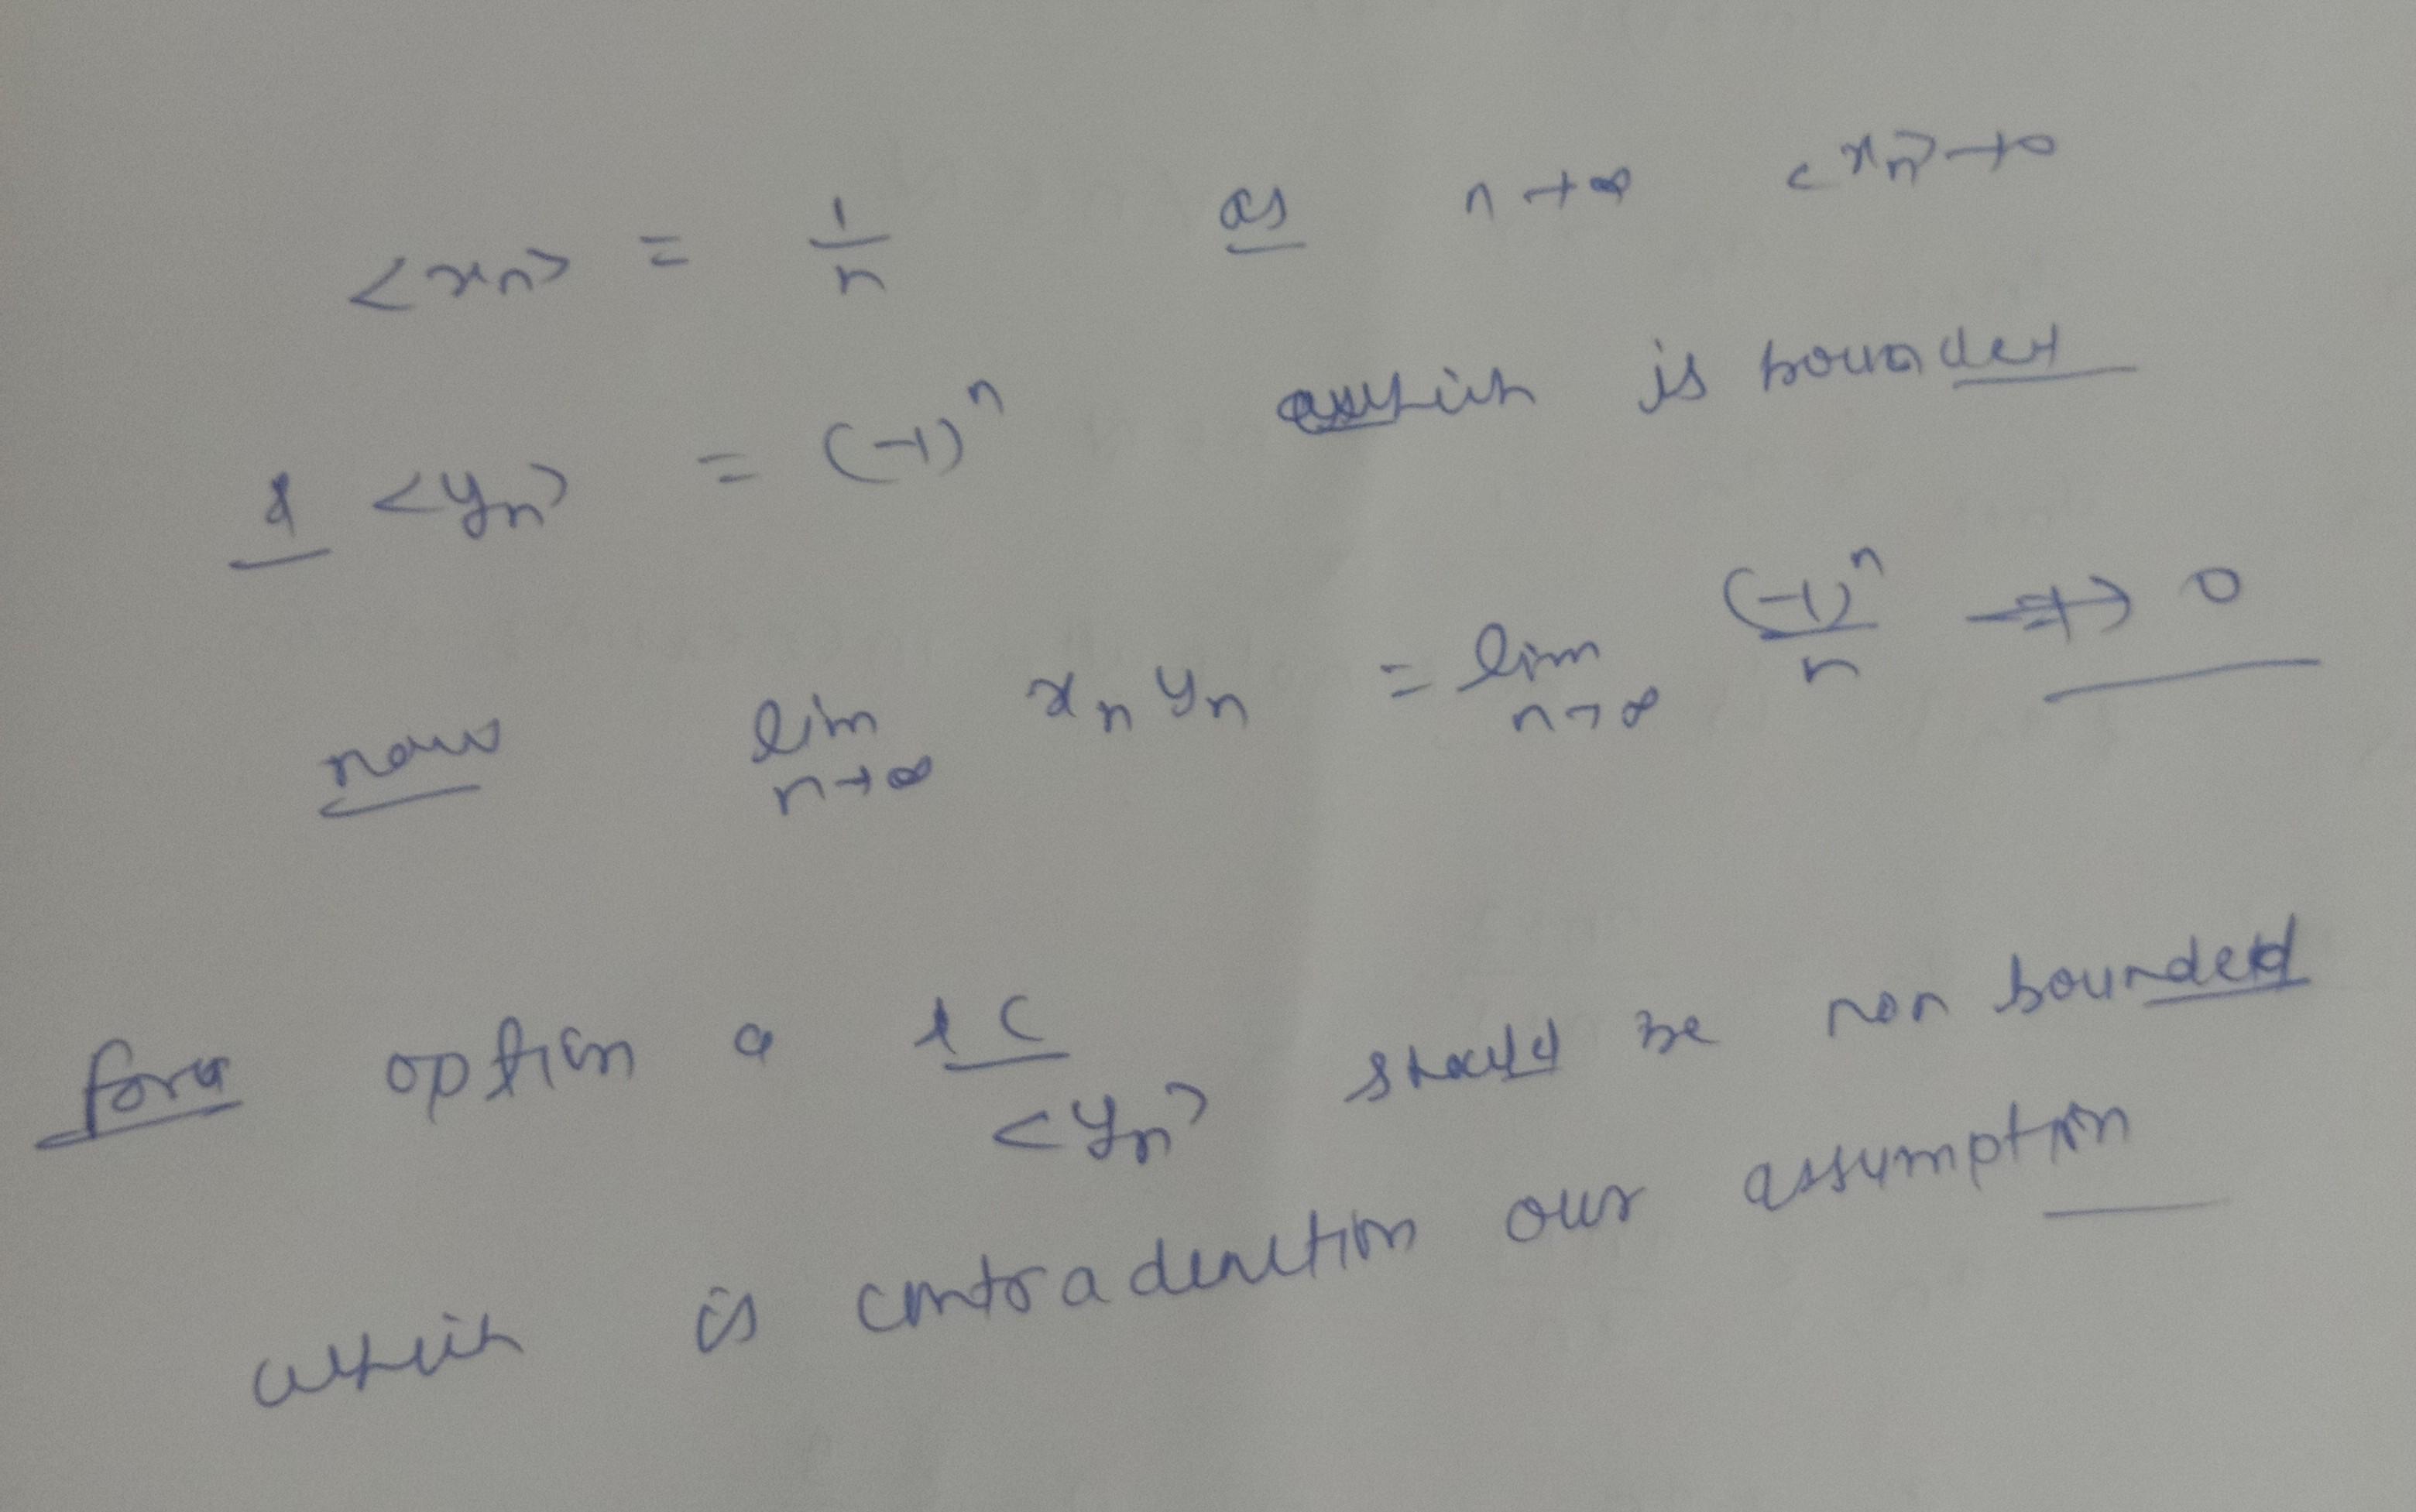 <xn> = 1/n as n→∞ <xn>→0
& <yn> = (-1)^n which is bounded
now lim n→∞ xn yn = lim n→∞ (-1)^n/n → 0
for option a & c
<yn> should be non bounded
which is contradenction our assumption